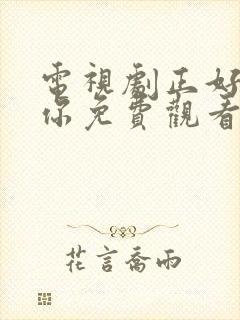 電視劇正好
你免費觀看
花言喬雨